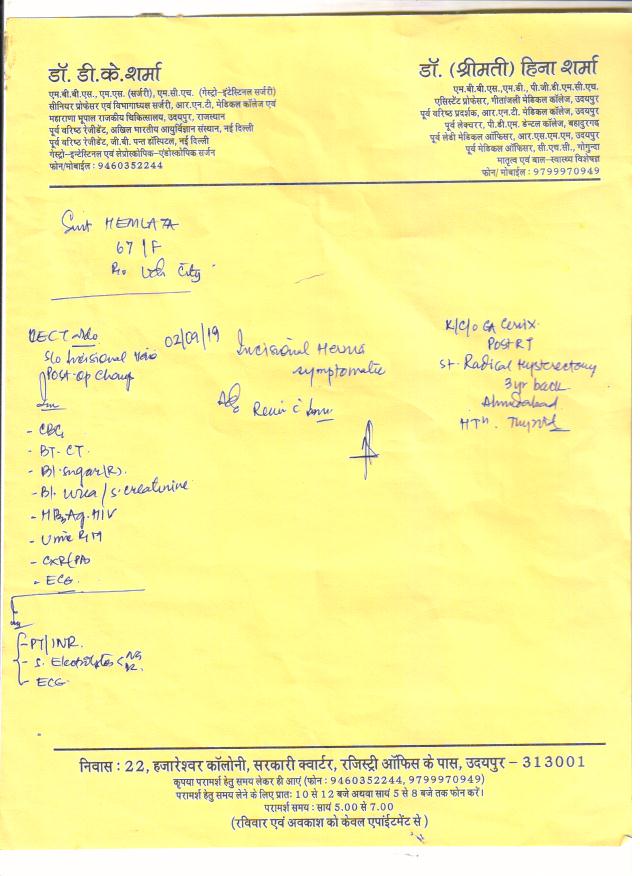 डॉ. डी.के.शर्मा
एम.बी.बी.एस., एम.एस. (सर्जरी), एम.सी.एच. (गेस्ट्रो-इंटेस्टिनल सर्जरी)
सीनियर प्रोफेसर एवं विभागाध्यक्ष सर्जरी, आर.एन.टी. मेडिकल कॉलेज एवं
महाराणा भूपाल राजकीय चिकित्सालय, उदयपुर, राजस्थान
पूर्व वरिष्ठ रेजीडेंट, अखिल भारतीय आयुर्विज्ञान संस्थान, नई दिल्ली
पूर्व वरिष्ठ रेजीडेंट, जी.बी. पन्त हॉस्पिटल, नई दिल्ली
गेस्ट्रो-इन्टेस्टिनल एवं लेप्रोस्कोपिक-एंडोस्कोपिक सर्जन
फोन/मोबाईल : 9460352244
डॉ. (श्रीमती) हिना शर्मा
एम.बी.बी.एस.,एम.डी., पी.जी.डी.एम.सी.एच.
एसिस्टेंट प्रोफेसर, गीतांजली मेडिकल कॉलेज, उदयपुर
पूर्व वरिष्ठ प्रदर्शक, आर.एन.टी. मेडिकल कॉलेज, उदयपुर
पूर्व लेक्चरर, पी.डी.एम. डेन्टल कॉलेज, बहादुरगढ़
पूर्व लेडी मेडिकल ऑफिसर, आर.एस.एम.एम, उदयपुर
पूर्व मेडिकल ऑफिसर, सी.एच.सी., गोगुन्दा
मातृत्व एवं बाल-स्वास्थ्य विशेषज्ञ
फोन/ मोबाईल : 9799970949
Smt HEMLATA
67/F
City
02/09/19
CECT
S/o Incisional
Post-Op Change
Incisional Hernia
symptomatic
K/C/O CA Cervix
POST RT
Radical Hysterectomy
3yr back
Ahmedabad
HTN.
- CBC
- BT-CT.
- Bl. sugar (R).
- Bl. Urea / S. creatinine
- HBsAg. HIV
- Urine R/M
- CXR (PA)
- ECG.
- PT/INR.
- S. Electrolytes < Na K.
- ECG
निवास : 22, हजारेश्वर कॉलोनी, सरकारी क्वार्टर, रजिस्ट्री ऑफिस के पास, उदयपुर - 313001
कृपया परामर्श हेतु समय लेकर ही आएं (फोन : 9460352244, 9799970949)
परामर्श हेतु समय लेने के लिए प्रातः 10 से 12 बजे अथवा सायं 5 से 8 बजे तक फोन करें।
परामर्श समय : सायं 5.00 से 7.00
(रविवार एवं अवकाश को केवल एपांईटमेंट से )